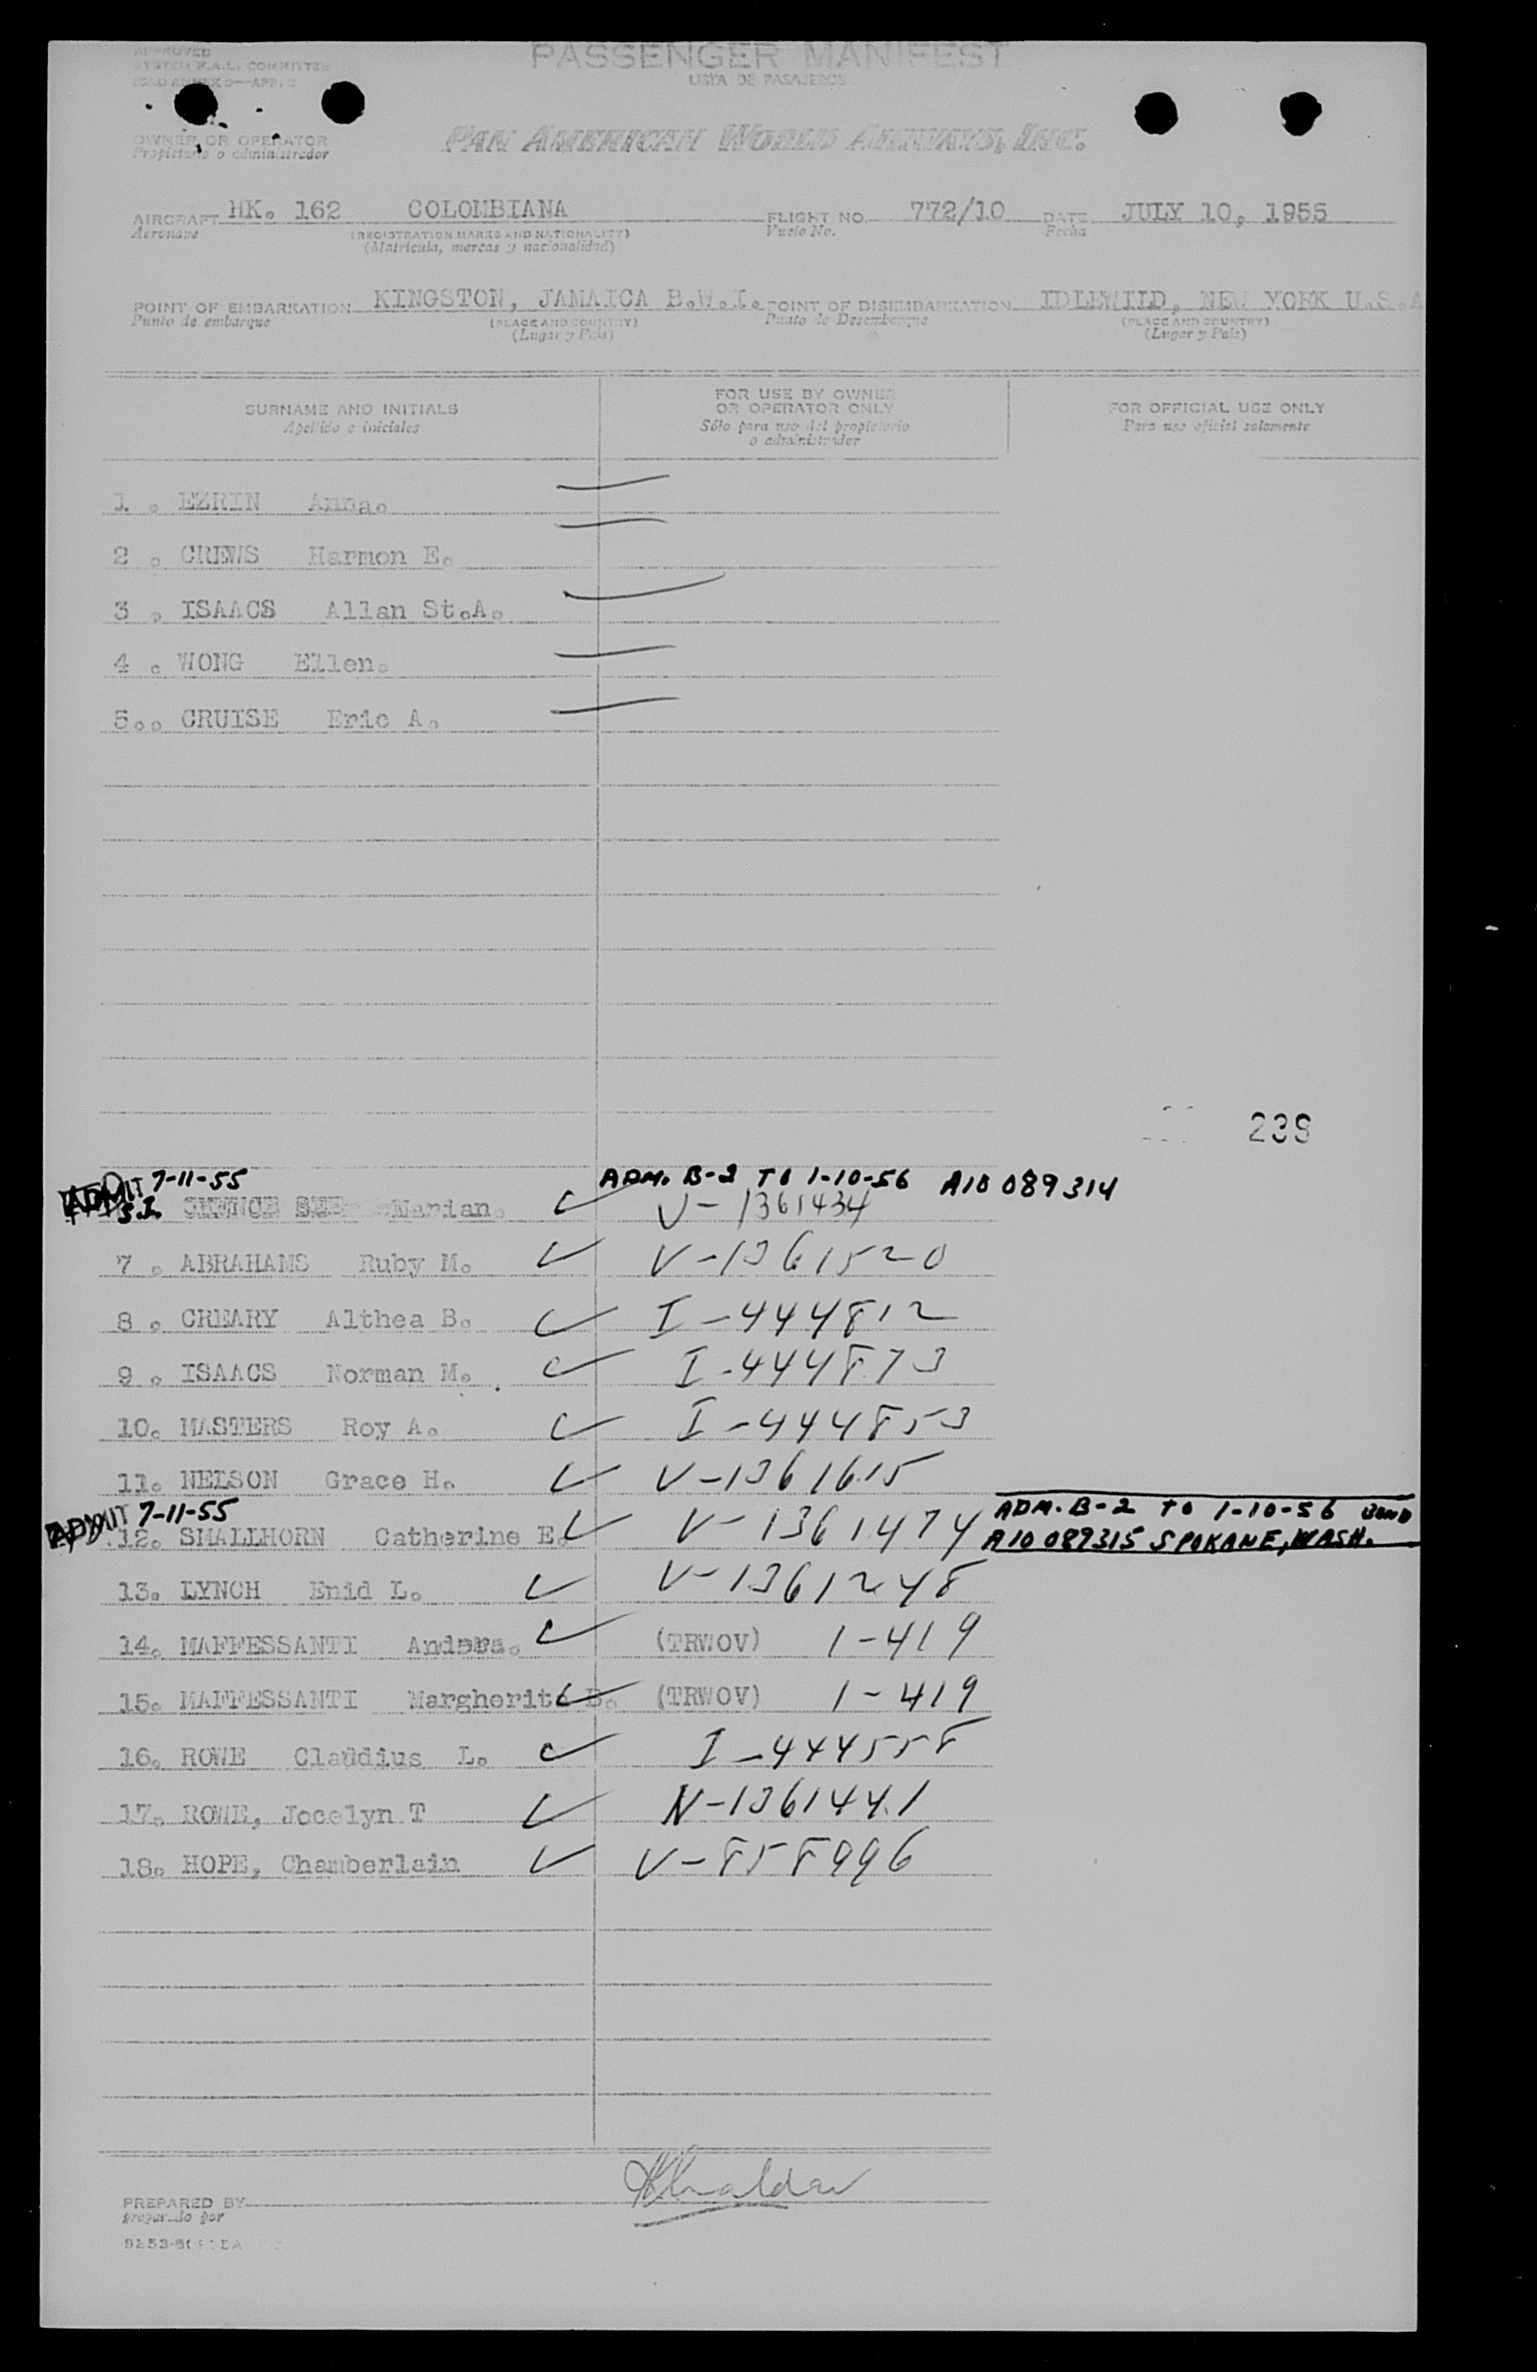 APPROVED
SYSTEM F.A.L. COMMITTEE
ICAO ANNEX 9—APP. 2
PASSENGER MANIFEST
LISTA DE PASAJEROS
OWNER OR OPERATOR
Propietario o administrador
PAN AMERICAN WORLD AIRWAYS, INC.
AIRCRAFT HK. 162 COLOMBIANA FLIGHT NO. 772/10 DATE JULY 10, 1955
Aeronave (REGISTRATION MARKS AND NATIONALITY) Vuelo No. Fecha
(Matricula, marcas y nacionalidad)
POINT OF EMBARKATION KINGSTON, JAMAICA B.W.I. POINT OF DISEMBARKATION IDLEWILD, NEW YORK U.S.A
Punto de embarque (PLACE AND COUNTRY) Punto de Desembarque (PLACE AND COUNTRY)
(Lugar y País) (Lugar y País)
SURNAME AND INITIALS FOR USE BY OWNER OR OPERATOR ONLY FOR OFFICIAL USE ONLY
Apellido e iniciales Sólo para uso del propietario o administrador Para uso oficial solamente
1 . EZRIN Anna.
2 . CREWS Harmon E.
3 . ISAACS Allan St.A.
4 . WONG Ellen.
5.. CRUISE Eric A.
239
ADMIT 7-11-55 ADM. B-2 TO 1-10-56 A10 089314
S.I. Marian. V-1361434
7 . ABRAHAMS Ruby M. V-1361520
8 . CREARY Althea B. I-444812
9 . ISAACS Norman M. I-444873
10. MASTERS Roy A. I-444853
11. NELSON Grace H. V-1361615
ADMIT 7-11-55 ADM. B-2 TO 1-10-56 BOND
12. SMALLHORN Catherine E. V-1361474 A10 089315 SPOKANE, WASH.
13. LYNCH Enid L. V-1361248
14. MAFFESSANTI (TRWOV) 1-419
15. MAFFESSANTI Margherita B. (TRWOV) 1-419
16. ROWE Claudius L. I-444558
17. ROWE, Jocelyn T N-1361441
18. HOPE, Chamberlain V-858996
PREPARED BY
preparado por